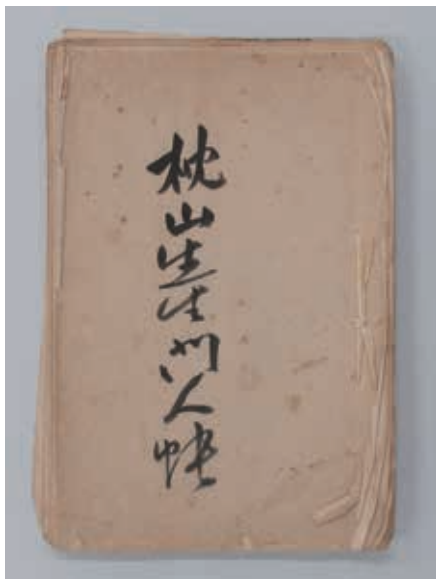 枕山先生門人帳